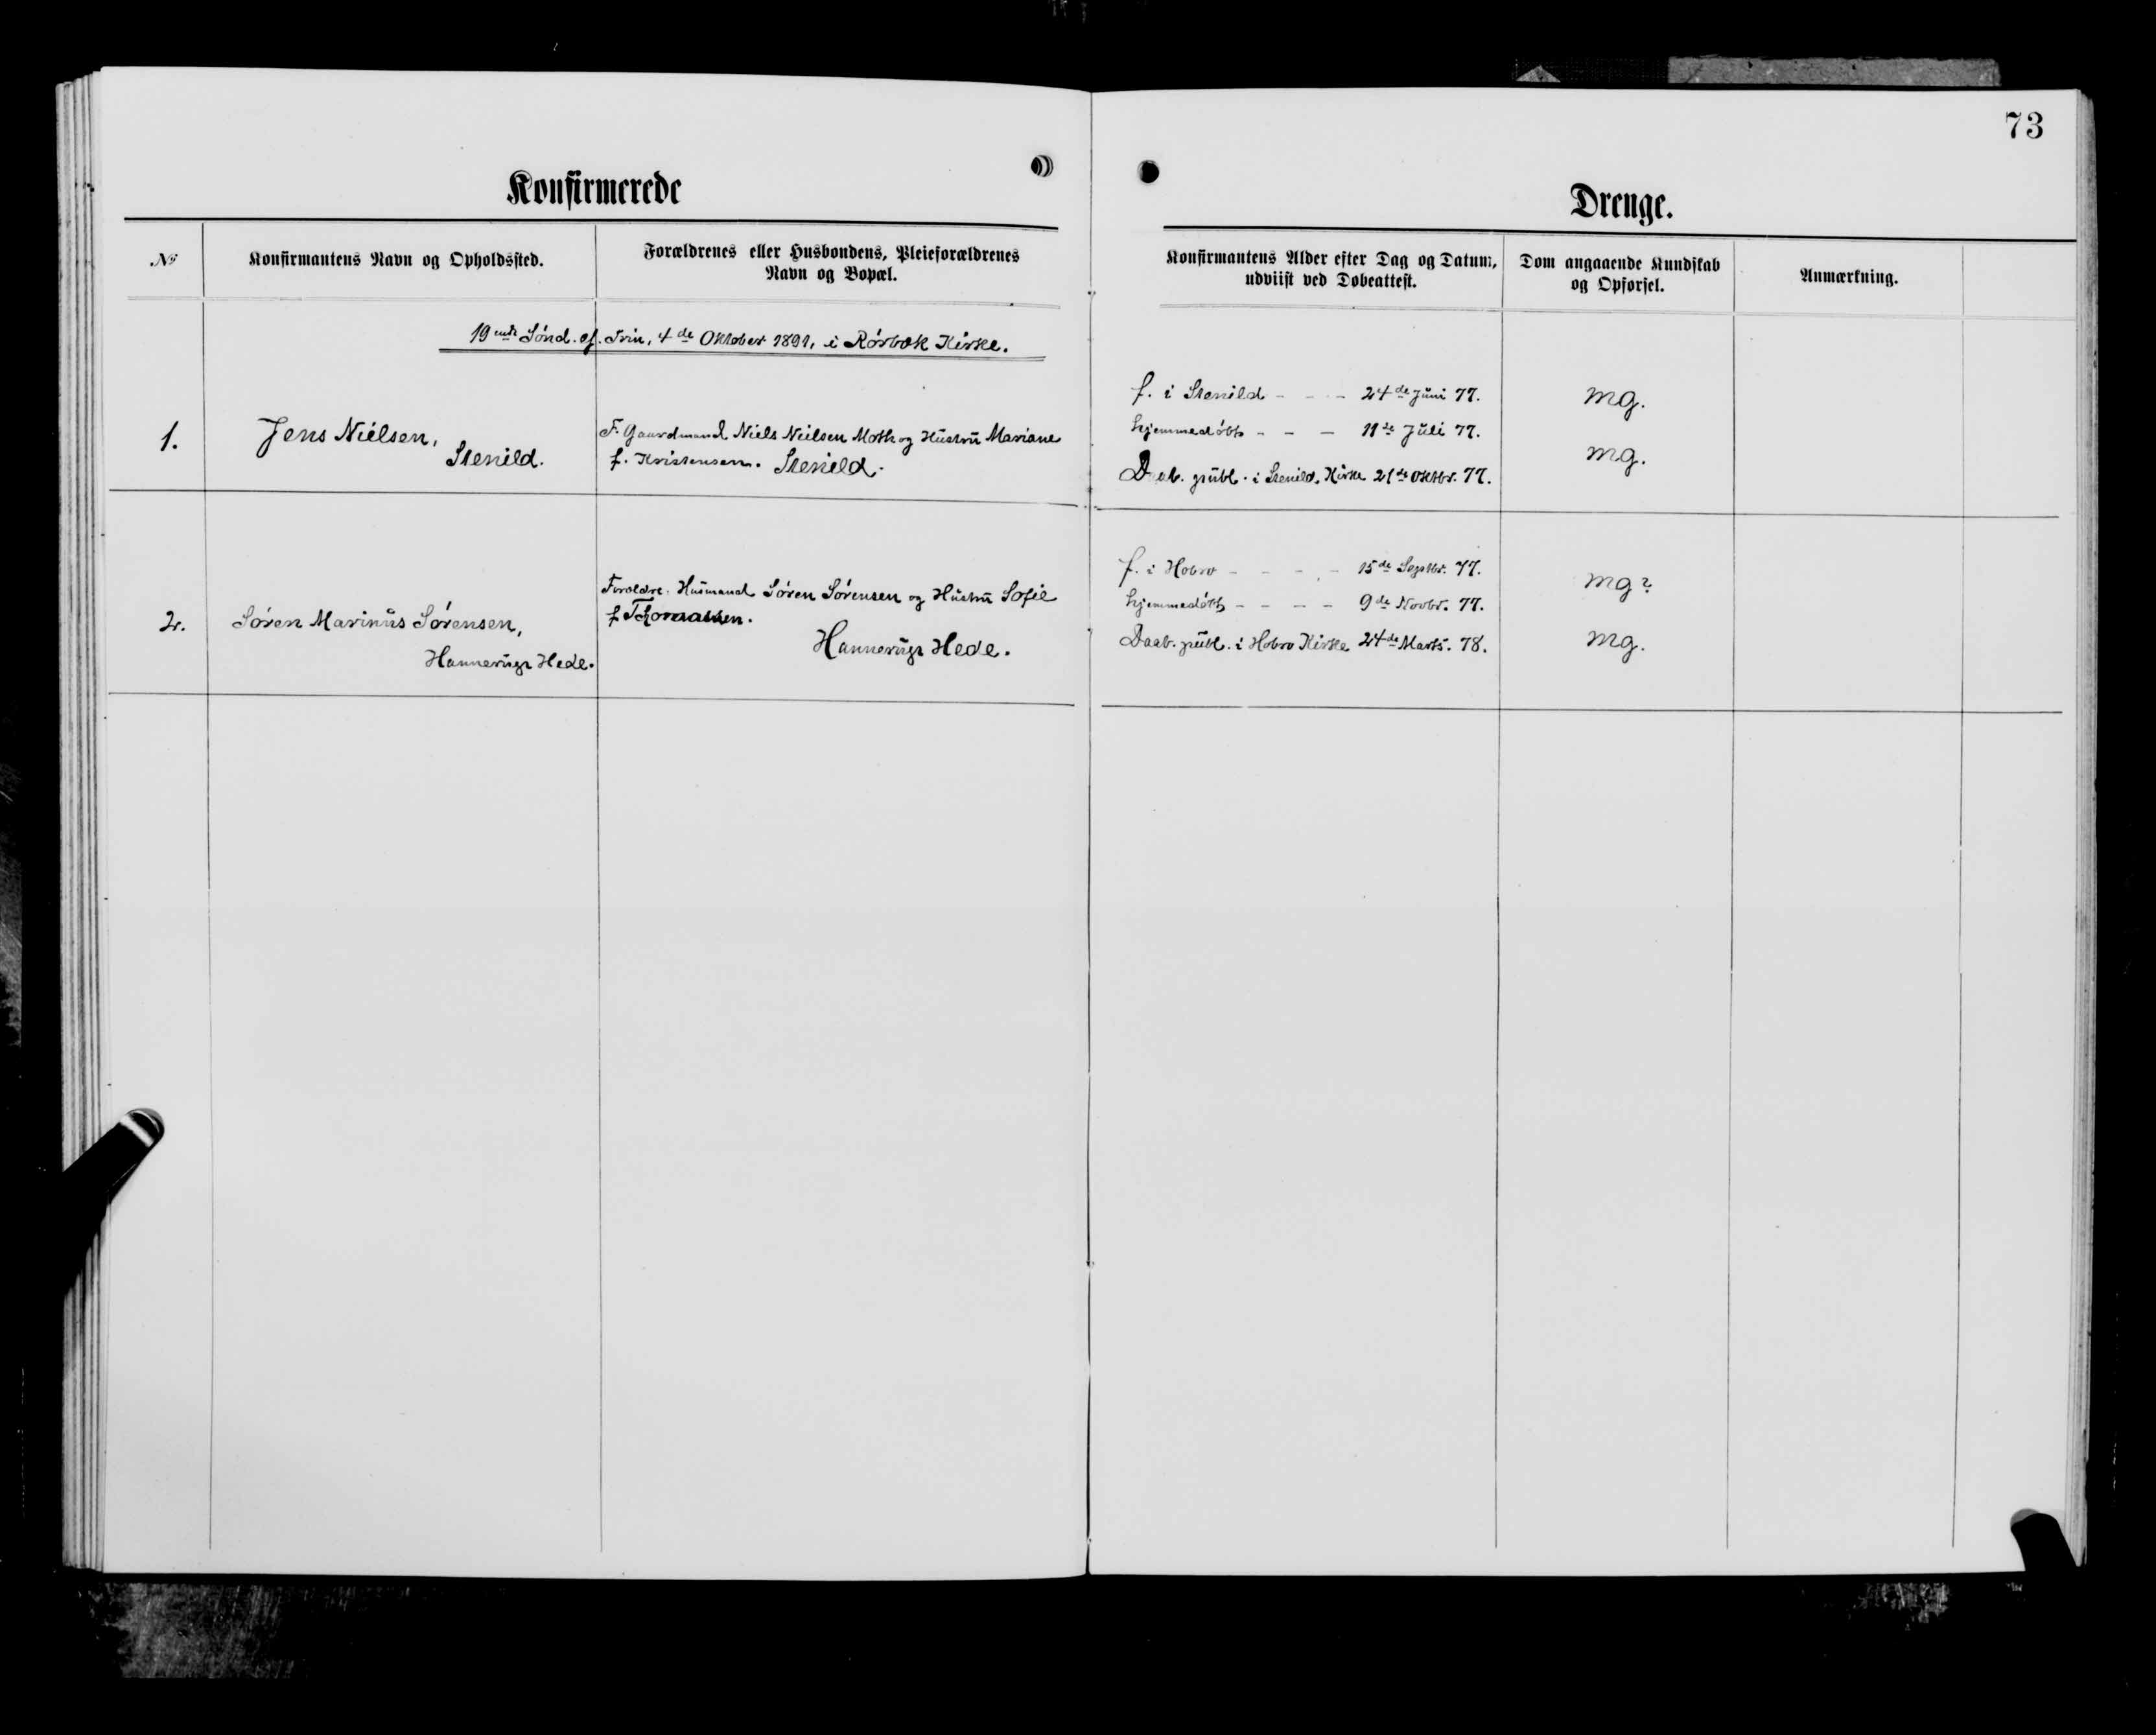 73
Konfirmerede
Drenge.
№
Konfirmantens Navn og Opholdssted.
Forældrenes eller Husbondens, Pleieforældrenes
Navn og Bopæl.
Konfirmantens Alder efter Dag og Datum,
udviist ved Døbeattest.
Dom angaaende Kundskab
og Opførsel.
Anmærkning.
19ende Sønd. ef. Trin, 4de Oktober 1891, i Rørbæk Kirke.
1.
Jens Nielsen,
Stenild.
F. Gaardmand Niels Nielsen Moth og Hustrü Mariane
f. Kristensen. Stenild.
f. i Stenild - - - 24de Jüni 77.
hjemmedøbt - - - 11te Jüli 77.
Daab. pübl. i Stenild Kirke 21de Oktbr. 77.
mg.
mg.
2.
Søren Marinüs Sørensen,
Hannerüp Hede.
Forældre: Hüsmand Søren Sørensen og Hüstrü Sofie
f Thomassen.
Hannerüp Hede.
f. i Hobro - - - - 15de Septbr. 77.
hjemmedøbt - - - - 9de Novbr. 77.
Daab. pübl. i Hobro Kirke 24de Marts. 78.
mg?
mg.